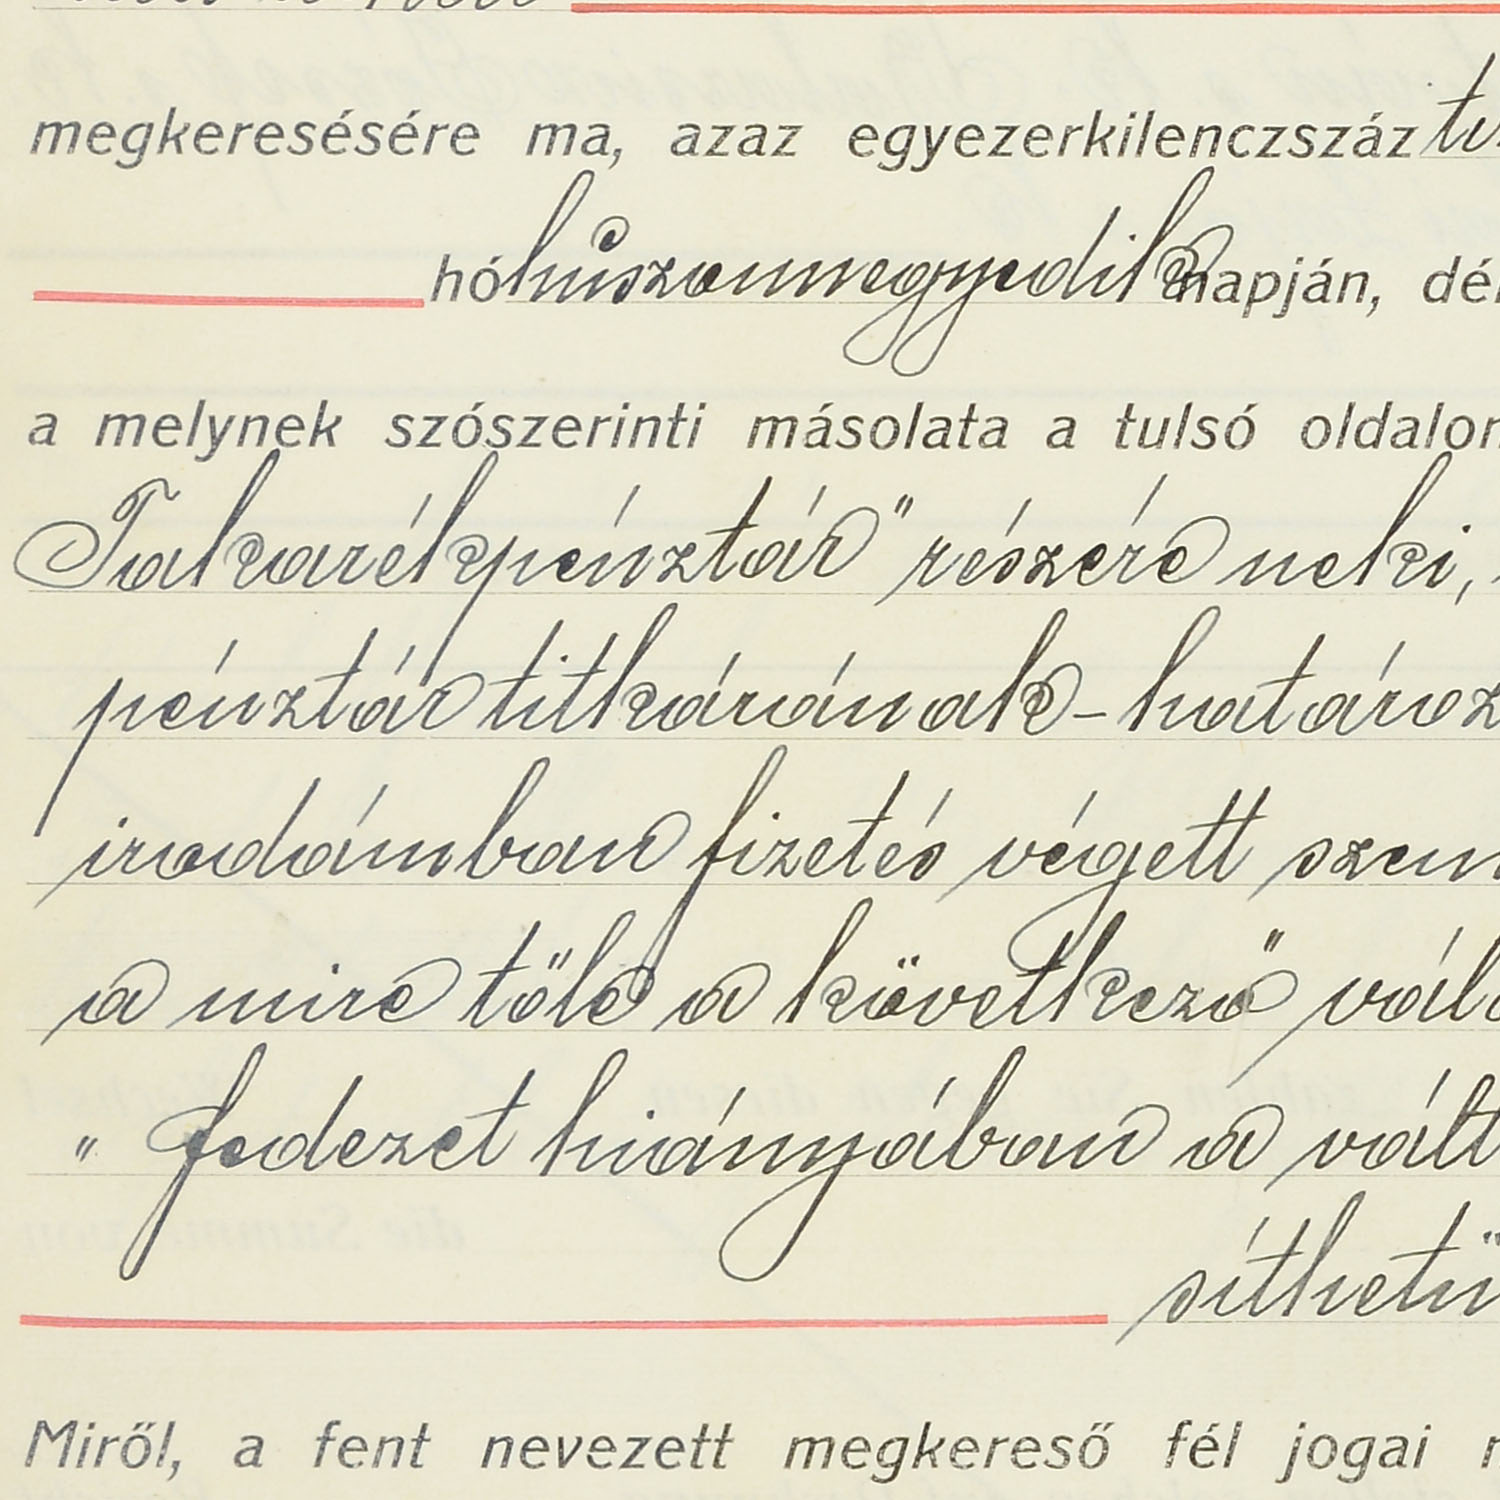 megkeresésére ma, azaz egyezerkilenczszáz
hó huszonnegyedik napján, dé
a melynek szószerinti másolata a tulsó oldalon
Takarékpénztár" részére neki,
pénztár titkárának - határoz
irodámban fizetés végett szem
a mire tőle a következő vála
" fedezet hiányában a vált
síthetü
Miről, a fent nevezett megkereső fél jogai